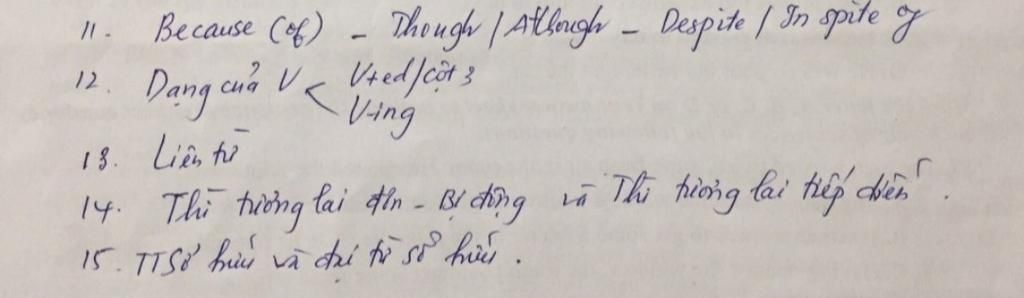 11. Because (of) – Though / Although – Despite / In spite of
12. Dạng của V < V+ed/cột 3
V-ing
13. Liên từ
14. Thì tương lai đơn - Bị động và Thì tương lai tiếp diễn.
15. TT Sở hữu và đại từ sở hữu.